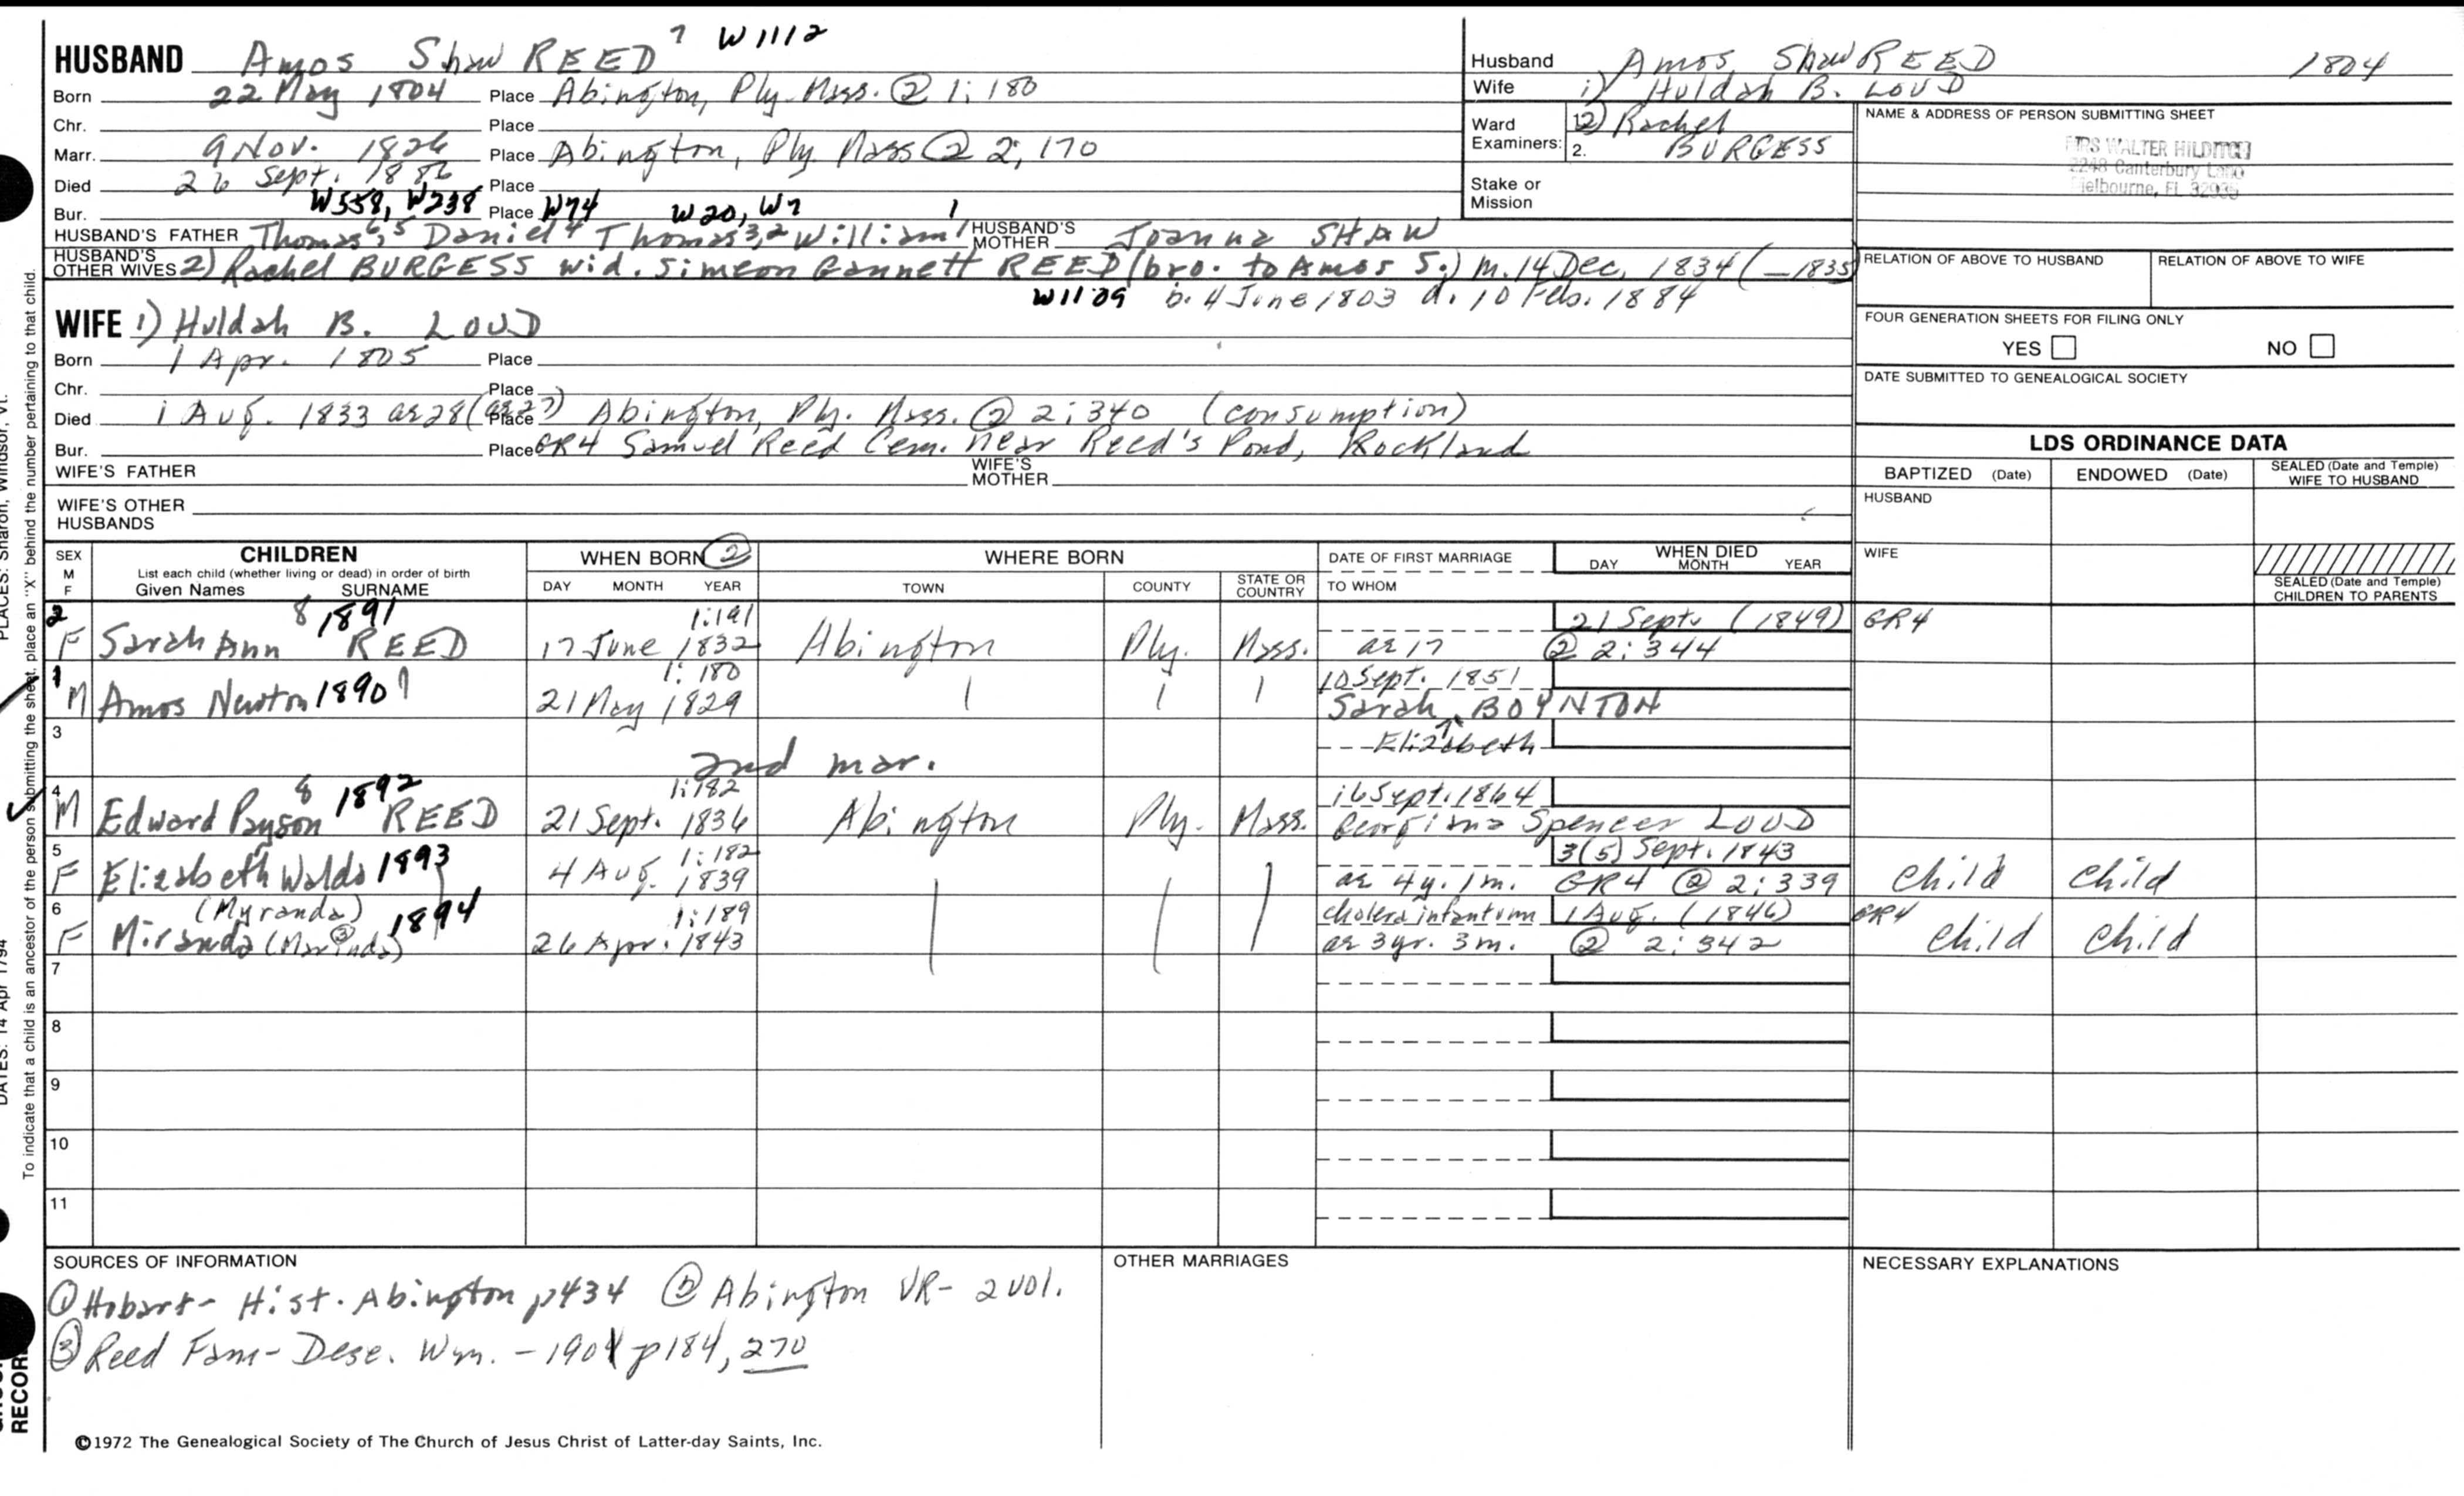 HUSBAND Amos Shaw REED 7 W1112
Born 22 May 1804 Place Abington, Ply. Mass. ② 1:180
Chr. Place
Marr. 9 Nov. 1826 Place Abington, Ply. Mass ② 2:170
Died 26 Sept. Place
Bur. W558, W238 Place W74 W20, W7 1
HUSBAND'S FATHER Thomas 6, 5 Daniel 4 Thomas 3, 2 William 1 HUSBAND'S MOTHER Joanna SHAW
HUSBAND'S OTHER WIVES 2) Rachel BURGESS wid. Simeon Gannett REED (bro. to Amos S.) m. 14 Dec. 1834 (-1835)
W1109 b. 4 June 1803 d. 10 Feb. 1884
WIFE 1) Huldah B. LOUD
Born 1 Apr. 1805 Place
Chr. Place
Died 1 Aug. 1833 ae 28 (ae 27) Place Abington, Ply. Mass. ② 2:340 (consumption)
Bur. Place GR4 Samuel Reed Cem. near Reed's Pond, Rockland
WIFE'S FATHER WIFE'S MOTHER
WIFE'S OTHER HUSBANDS
Husband Amos Shaw REED 1804
Wife 1) Huldah B. LOUD
Ward Examiners: 1. 2) Rachel
2. BURGESS
Stake or Mission
NAME & ADDRESS OF PERSON SUBMITTING SHEET
MRS WALTER HILDITCH
2248 Canterbury Lane
Melbourne, FL 32935
RELATION OF ABOVE TO HUSBAND RELATION OF ABOVE TO WIFE
FOUR GENERATION SHEETS FOR FILING ONLY
YES NO
DATE SUBMITTED TO GENEALOGICAL SOCIETY
LDS ORDINANCE DATA
BAPTIZED (Date) ENDOWED (Date) SEALED (Date and Temple) WIFE TO HUSBAND
HUSBAND
WIFE
SEALED (Date and Temple) CHILDREN TO PARENTS
SEX M F
CHILDREN
List each child (whether living or dead) in order of birth
Given Names SURNAME
WHEN BORN ②
DAY MONTH YEAR
WHERE BORN
TOWN COUNTY STATE OR COUNTRY
DATE OF FIRST MARRIAGE
TO WHOM
WHEN DIED
DAY MONTH YEAR
2 8 1891 1:191 21 Sept. (1849) GR4
F Sarah Ann REED 17 June 1832 Abington Ply. Mass. ae 17 ② 2:344
1 1:180 10 Sept. 1851
M Amos Newton 1890 21 May 1829 Sarah BOYNTON
3 Elizabeth
2nd mar.
4 8 1892 1:182 16 Sept. 1864
M Edward Payson REED 21 Sept. 1836 Abington Ply. Mass. Georgiana Spencer LOUD
5 1893 1:182 3(5) Sept. 1843
F Elizabeth Waldo 4 Aug. 1839 ae 4y. 1m. GR4 ② 2:339 child child
6 (Myranda) 1894 1:189 cholera infantum 1 Aug. (1846) GR4
F Miranda (Marinda) ③ 26 Apr. 1843 ae 3yr. 3m. ② 2:342 child child
7
8
9
10
11
SOURCES OF INFORMATION
① Hobart- Hist. Abington p434 ② Abington VR- 2 vol.
③ Reed Fam- Desc. Wm. - 1901 p184, 270
OTHER MARRIAGES
NECESSARY EXPLANATIONS
©1972 The Genealogical Society of The Church of Jesus Christ of Latter-day Saints, Inc.
To indicate that a child is an ancestor of the person submitting the sheet, place an "X" behind the number pertaining to that child.
PLACES: Sharon, Windsor, Vt.
DATES: 14 Apr 1794
RECORD